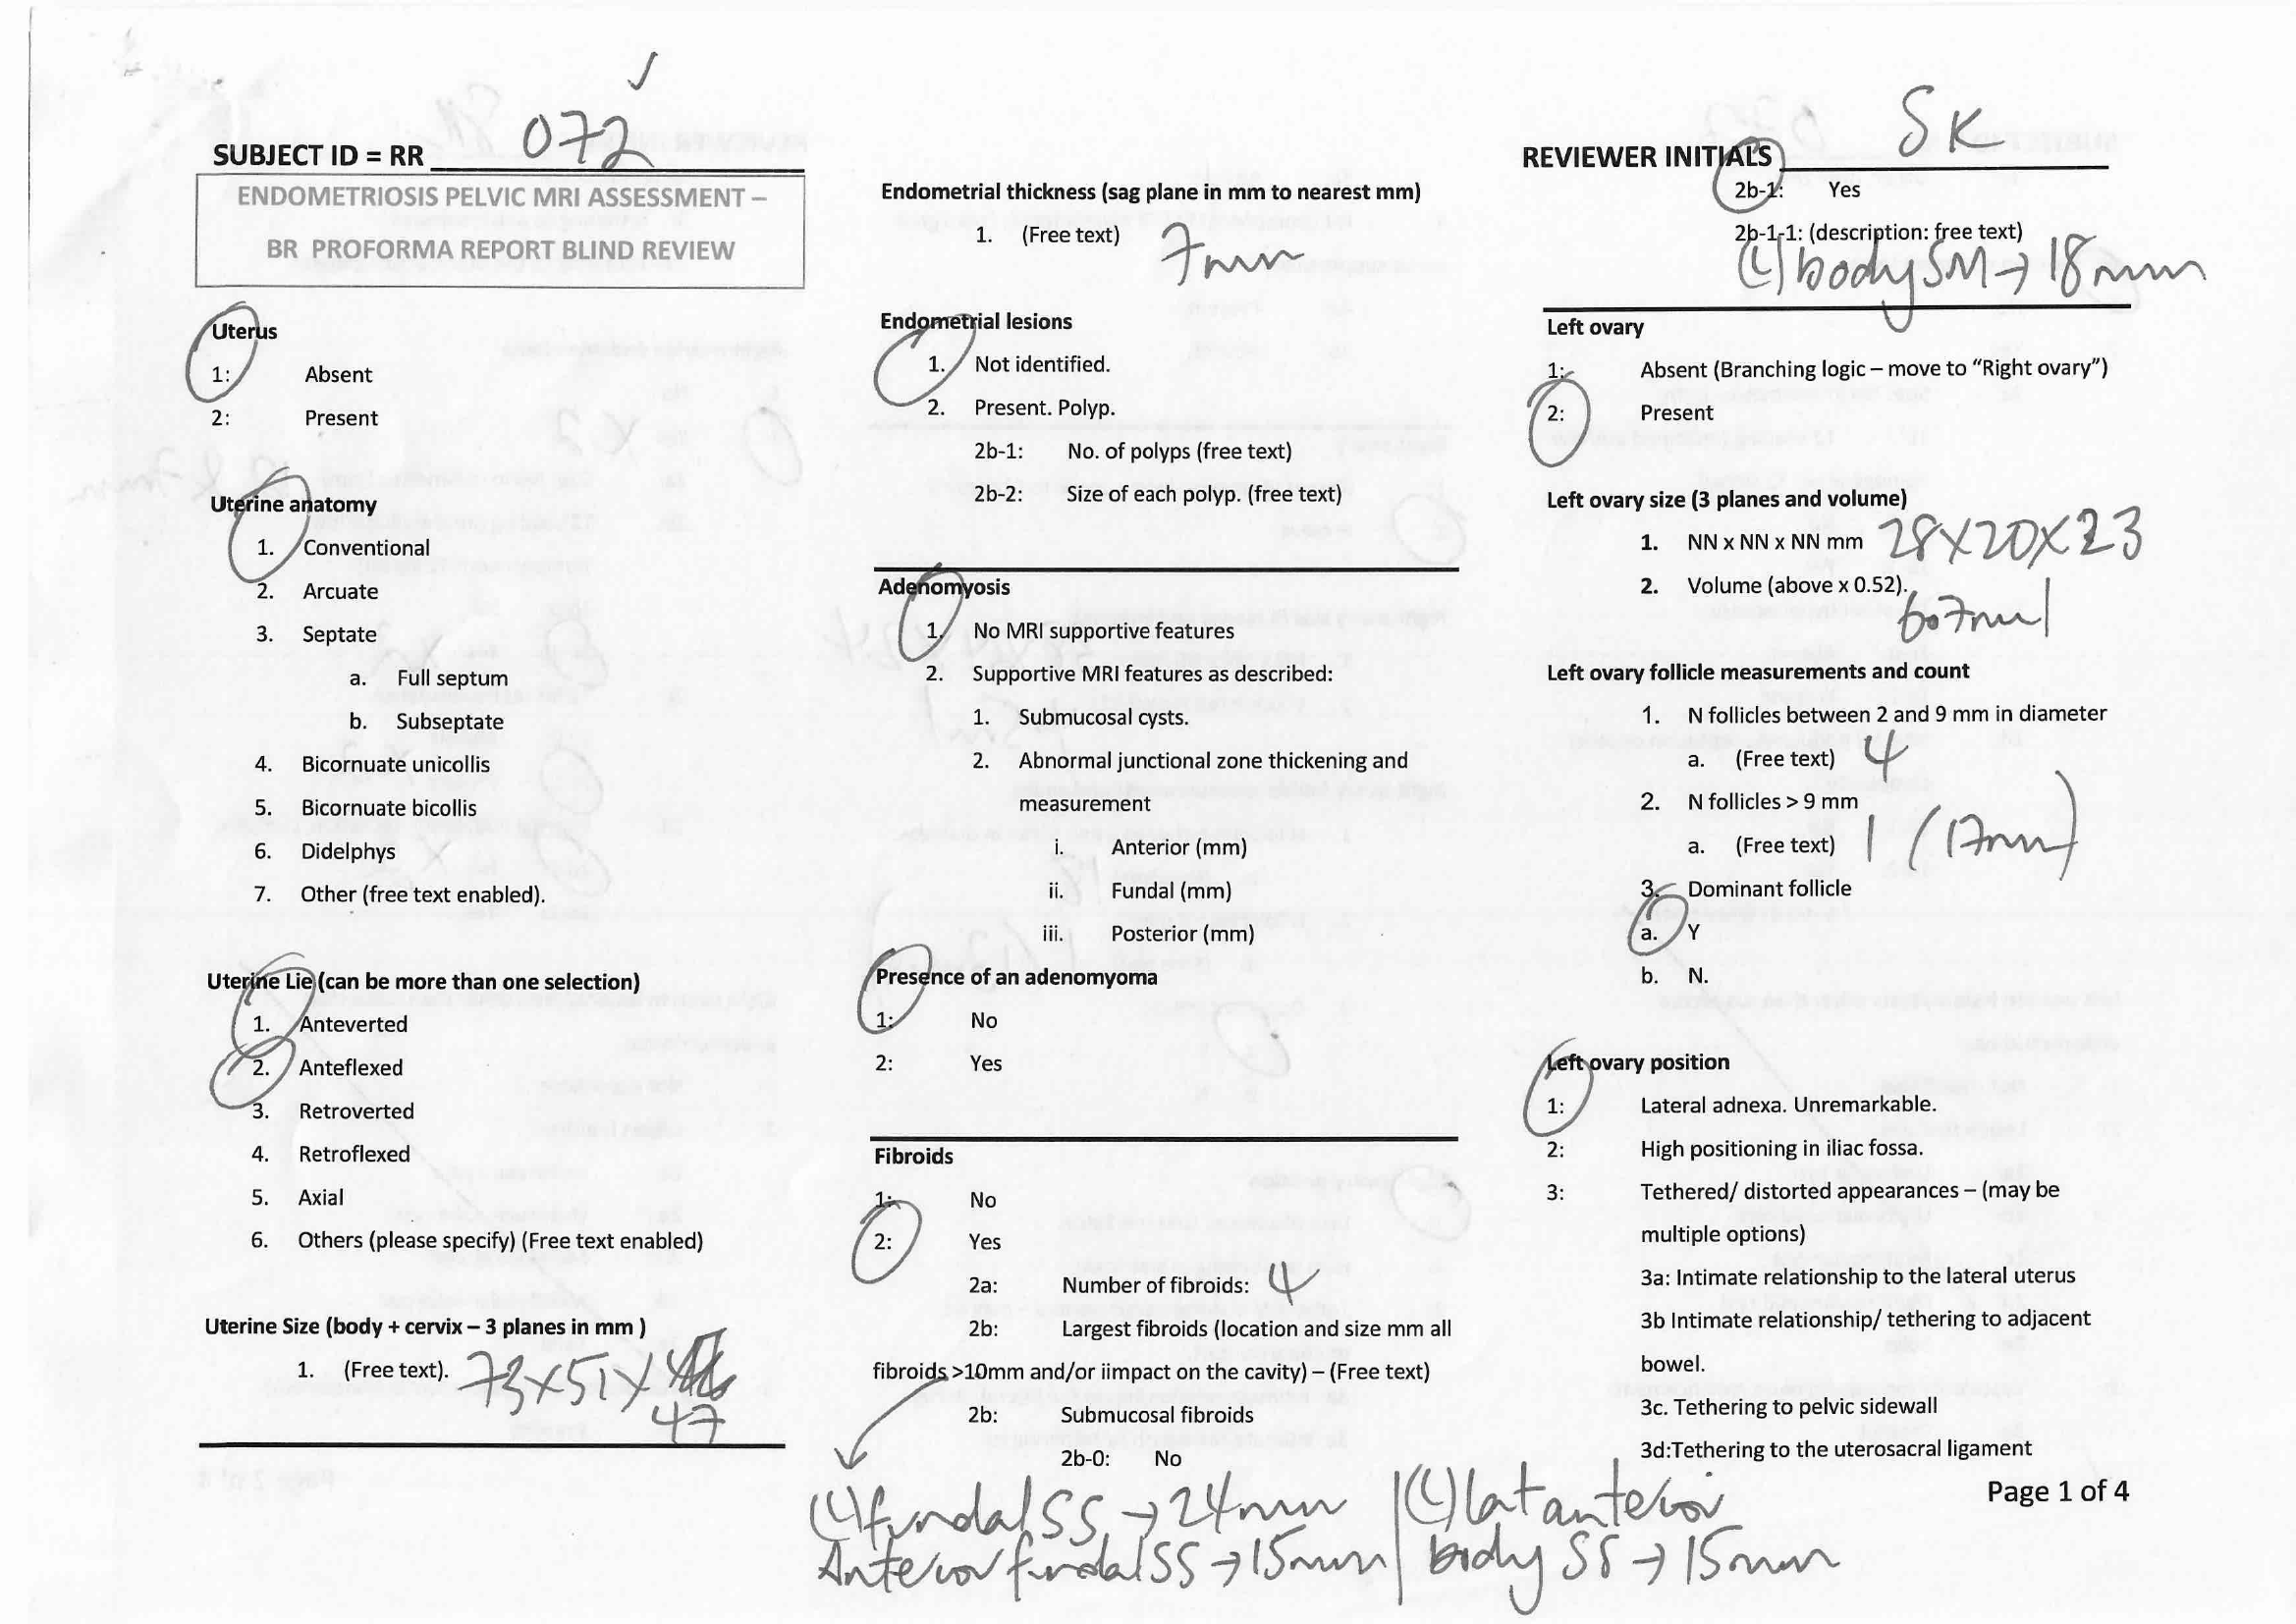 SUBJECT ID = RR 072
ENDOMETRIOSIS PELVIC MRI ASSESSMENT –
BR PROFORMA REPORT BLIND REVIEW
Uterus
1: Absent
2: Present
Uterine anatomy
1. Conventional
2. Arcuate
3. Septate
a. Full septum
b. Subseptate
4. Bicornuate unicollis
5. Bicornuate bicollis
6. Didelphys
7. Other (free text enabled).
Uterine Lie (can be more than one selection)
1. Anteverted
2. Anteflexed
3. Retroverted
4. Retroflexed
5. Axial
6. Others (please specify) (Free text enabled)
Uterine Size (body + cervix – 3 planes in mm )
1. (Free text). 73x51x
47
Endometrial thickness (sag plane in mm to nearest mm)
1. (Free text) 7mm
Endometrial lesions
1. Not identified.
2. Present. Polyp.
2b-1: No. of polyps (free text)
2b-2: Size of each polyp. (free text)
Adenomyosis
1. No MRI supportive features
2. Supportive MRI features as described:
1. Submucosal cysts.
2. Abnormal junctional zone thickening and
measurement
i. Anterior (mm)
ii. Fundal (mm)
iii. Posterior (mm)
Presence of an adenomyoma
1: No
2: Yes
Fibroids
1: No
2: Yes
2a: Number of fibroids: 4
2b: Largest fibroids (location and size mm all
fibroids >10mm and/or iimpact on the cavity) – (Free text)
2b: Submucosal fibroids
2b-0: No
(L) fundal SS → 24mm
Anterior fundal SS → 15mm
(L) lat anterior
body SS → 15mm
REVIEWER INITIALS SK
2b-1: Yes
2b-1-1: (description: free text)
(L) body SM → 18mm
Left ovary
1: Absent (Branching logic – move to “Right ovary”)
2: Present
Left ovary size (3 planes and volume)
1. NN x NN x NN mm 28x20x23
2. Volume (above x 0.52).
Left ovary follicle measurements and count
1. N follicles between 2 and 9 mm in diameter
a. (Free text) 4
2. N follicles > 9 mm
a. (Free text) 1 (17mm)
3. Dominant follicle
a. Y
b. N.
Left ovary position
1: Lateral adnexa. Unremarkable.
2: High positioning in iliac fossa.
3: Tethered/ distorted appearances – (may be
multiple options)
3a: Intimate relationship to the lateral uterus
3b Intimate relationship/ tethering to adjacent
bowel.
3c. Tethering to pelvic sidewall
3d:Tethering to the uterosacral ligament
Page 1 of 4